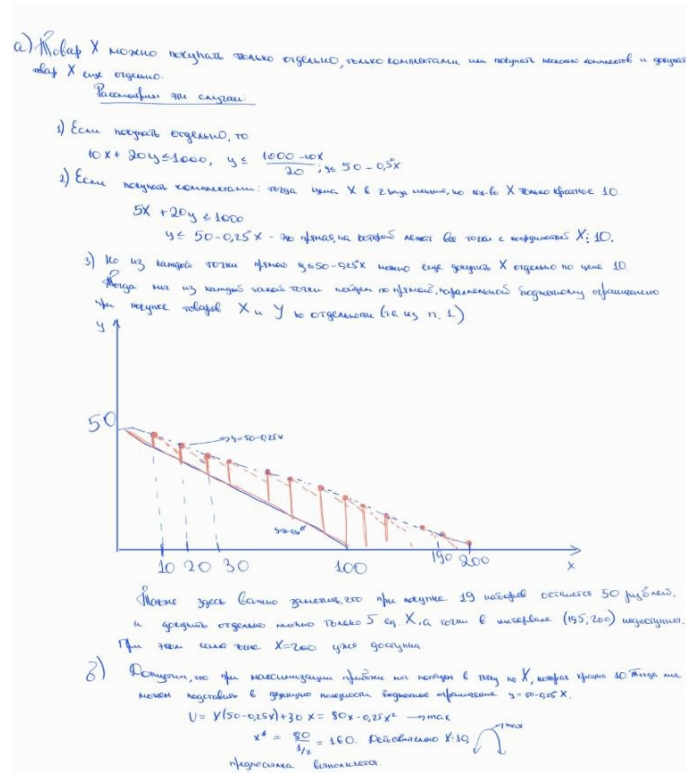 а) Товар X можно покупать только отдельно, только комплектами или покупать несколько комплектов и докупать
товар X еще отдельно.
Рассмотрим эти случаи.
1) Если покупать отдельно, то
10x + 20y ≤ 1000, y ≤ (1000 - 10x)/20; y ≤ 50 - 0,5x
2) Если покупать комплектами: тогда цена X в 2 раза меньше, но кол-во X только кратное 10.
5X + 20y ≤ 1000
y ≤ 50 - 0,25x - это прямая, на которой лежат все точки с координатой X⋮10.
3) Но из каждой точки прямой y ≤ 50 - 0,25x можно еще докупать X отдельно по цене 10
Тогда мы из каждой такой точки пойдем по прямой, параллельной бюджетному ограничению
при покупке товаров X и Y по отдельности (те из п. 1)
y
50
y=50-0,25x
10 20 30 100 190 200
x
Также здесь важно заметить, что при покупке 19 наборов останется 50 рублей.
и докупить отдельно можно только 5 ед. X, а точки в интервале (195, 200) недоступны.
При этом сама точка X=200 уже доступна.
б) Допустим, что при максимизации мы попадем в точку по X, которая кратна 10. Тогда мы
можем подставить в функцию полезности бюджетное ограничение y = 50 - 0,25X.
U = X(50 - 0,25x) + 30x = 80x - 0,25x² → max
x* = 80/(1/2) = 160. Действительно X⋮10,
max
предпосылка выполняется.